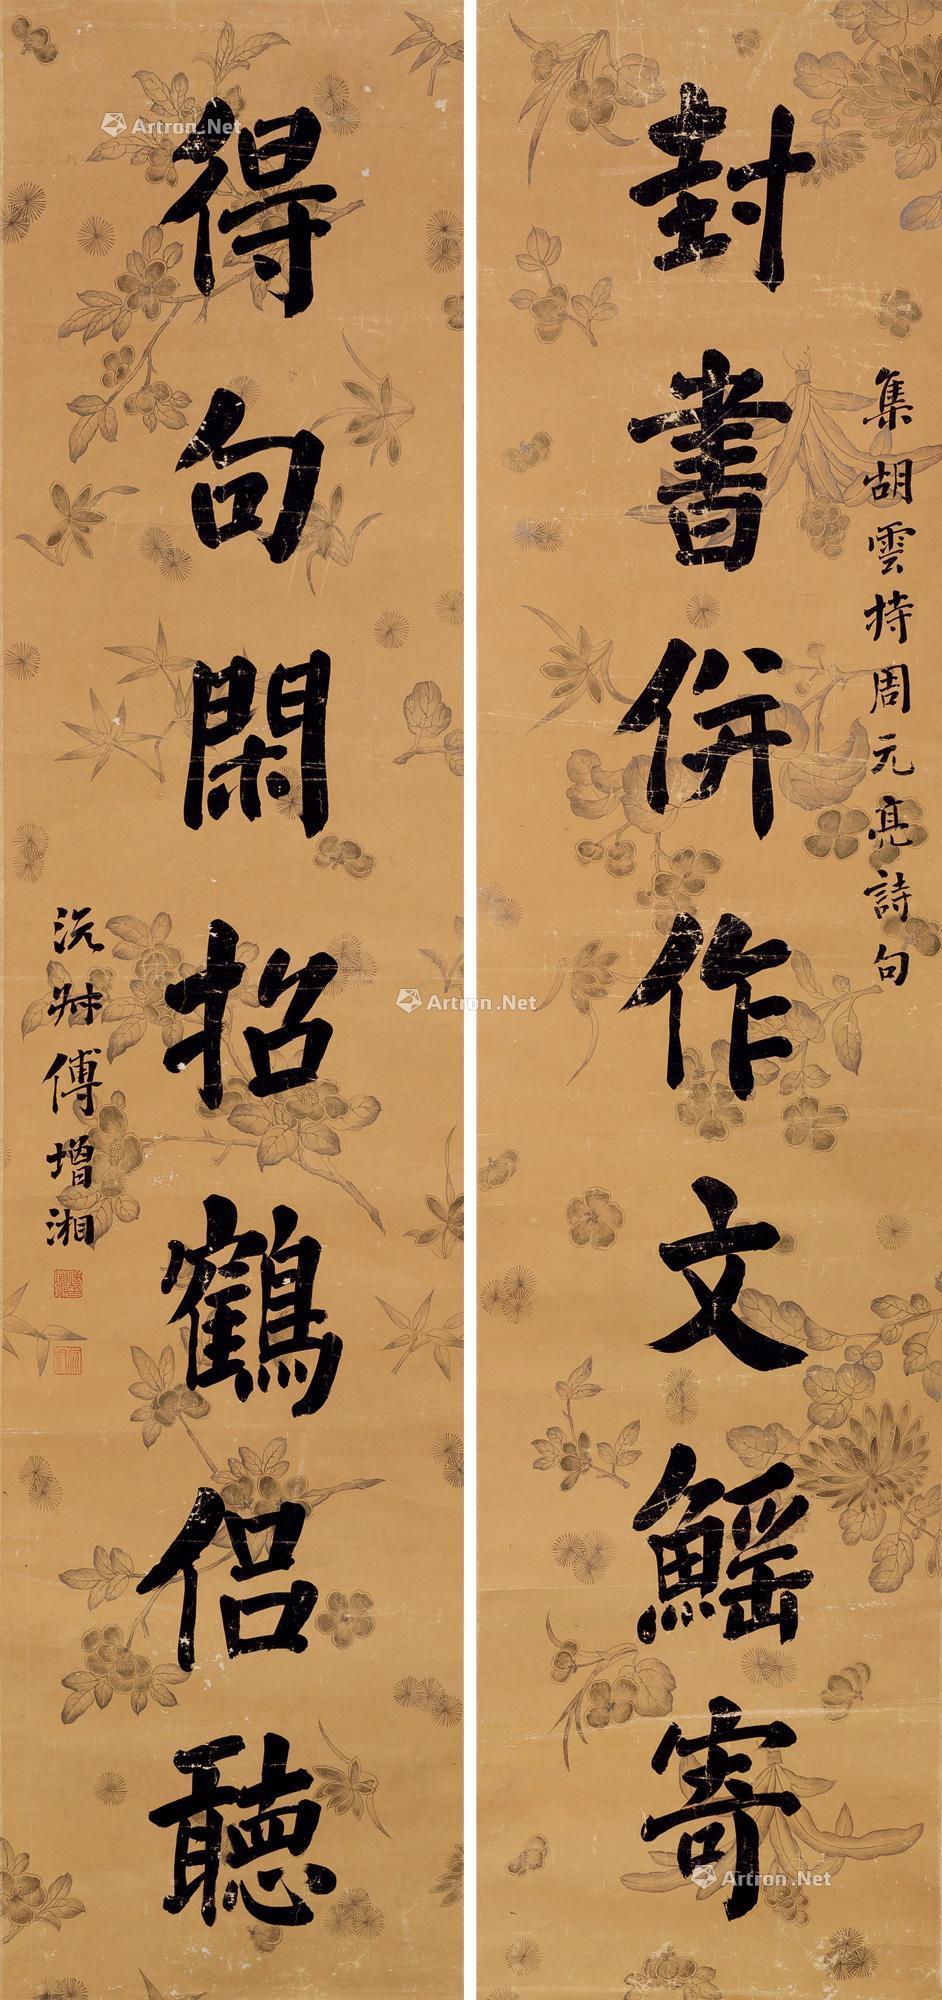 集胡雲持周元亮詩句
封書併作文鰩寄
得句閑招鶴侶聽
沅叔傅增湘
Artron.Net
Artron.Net
Artron.Net